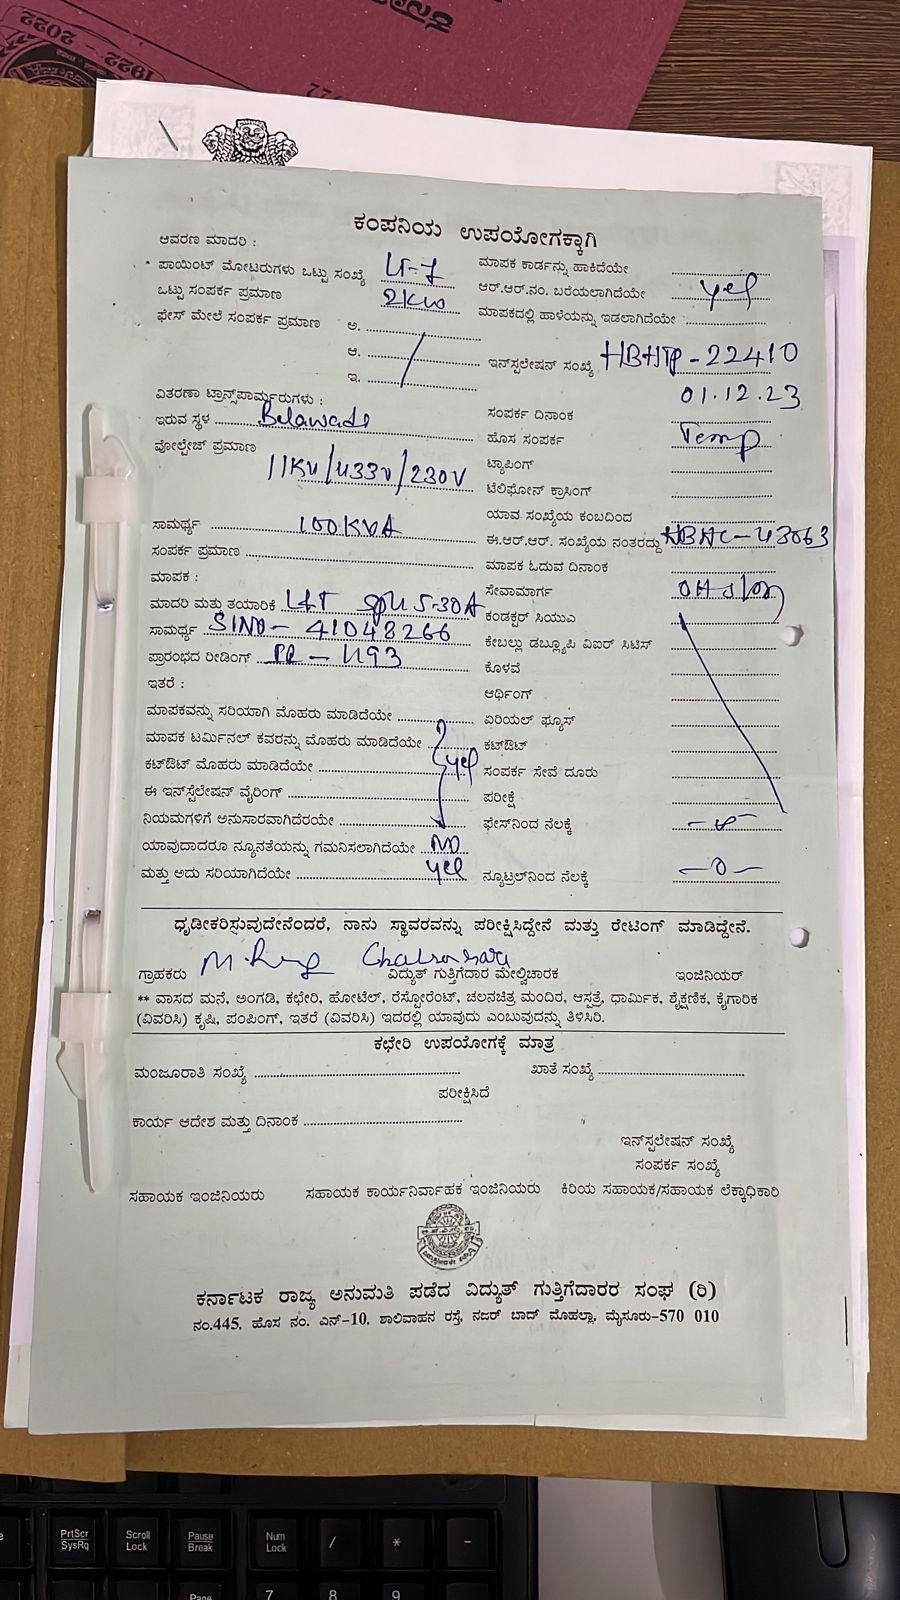 1922 - 2022
ಕಂಪನಿಯ ಉಪಯೋಗಕ್ಕಾಗಿ
ಆವರಣ ಮಾದರಿ :
ಪಾಯಿಂಟ್ ಮೋಟರುಗಳು ಒಟ್ಟು ಸಂಖ್ಯೆ LT-7 ಮಾಪಕ ಕಾರ್ಡನ್ನು ಹಾಕಿದೆಯೇ
ಒಟ್ಟು ಸಂಪರ್ಕ ಪ್ರಮಾಣ 2KW ಆರ್.ಆರ್.ನಂ. ಬರೆಯಲಾಗಿದೆಯೇ yes
ಫೇಸ್ ಮೇಲೆ ಸಂಪರ್ಕ ಪ್ರಮಾಣ ಅ. ಮಾಪಕದಲ್ಲಿ ಹಾಳೆಯನ್ನು ಇಡಲಾಗಿದೆಯೇ
ಆ. ಇನ್‌ಸ್ಪಲೇಷನ್ ಸಂಖ್ಯೆ HBHTP-22410
ಇ. 01.12.23
ವಿತರಣಾ ಟ್ರಾನ್ಸ್‌ಪಾರ್ಮ್ರರುಗಳು : ಸಂಪರ್ಕ ದಿನಾಂಕ
ಇರುವ ಸ್ಥಳ Belawadi ಹೊಸ ಸಂಪರ್ಕ Temp
ವೋಲ್ಟೇಜ್ ಪ್ರಮಾಣ 11KV/433V/230V ಟ್ಯಾಪಿಂಗ್
ಟೆಲಿಫೋನ್ ಕ್ರಾಸಿಂಗ್
ಯಾವ ಸಂಖ್ಯೆಯ ಕಂಬದಿಂದ
ಸಾಮರ್ಥ್ಯ 100KVA ಈ.ಆರ್.ಆರ್. ಸಂಖ್ಯೆಯ ನಂತರದ್ದು HBHC-43063
ಸಂಪರ್ಕ ಪ್ರಮಾಣ ಮಾಪಕ ಓದುವ ದಿನಾಂಕ
ಮಾಪಕ : ಸೇವಾಮಾರ್ಗ OH
ಮಾದರಿ ಮತ್ತು ತಯಾರಿಕೆ L&T 5-30A ಕಂಡಕ್ಟರ್ ಸಿಯುಎ
ಸಾಮರ್ಥ್ಯ SINO-41048266 ಕೇಬಲ್ಲು ಡಬ್ಲ್ಯೂಪಿ ವಿಐರ್ ಸಿಟಿಸ್
ಪ್ರಾರಂಭದ ರೀಡಿಂಗ್ PR-1193 ಕೊಳವೆ
ಇತರೆ : ಆರ್ಥಿಂಗ್
ಮಾಪಕವನ್ನು ಸರಿಯಾಗಿ ಮೊಹರು ಮಾಡಿದೆಯೇ ಏರಿಯಲ್ ಫ್ಯೂಸ್
ಮಾಪಕ ಟರ್ಮಿನಲ್ ಕವರನ್ನು ಮೊಹರು ಮಾಡಿದೆಯೇ ಕಟ್‌ಔಟ್
ಕಟ್‌ಔಟ್ ಮೊಹರು ಮಾಡಿದೆಯೇ yes ಸಂಪರ್ಕ ಸೇವೆ ದೂರು
ಈ ಇನ್‌ಸ್ಪೆಲೇಷನ್ ವೈರಿಂಗ್ ಪರೀಕ್ಷೆ
ನಿಯಮಗಳಿಗೆ ಅನುಸಾರವಾಗಿದೆರಯೇ ಫೇಸ್‌ನಿಂದ ನೆಲಕ್ಕೆ
ಯಾವುದಾದರೂ ನ್ಯೂನತೆಯನ್ನು ಗಮನಿಸಲಾಗಿದೆಯೇ NO
ಮತ್ತು ಅದು ಸರಿಯಾಗಿದೆಯೇ yes ನ್ಯೂಟ್ರಲ್‌ನಿಂದ ನೆಲಕ್ಕೆ -0-
ಧೃಡೀಕರಿಸುವುದೇನೆಂದರೆ, ನಾನು ಸ್ಥಾವರವನ್ನು ಪರೀಕ್ಷಿಸಿದ್ದೇನೆ ಮತ್ತು ರೇಟಿಂಗ್ ಮಾಡಿದ್ದೇನೆ.
ಗ್ರಾಹಕರು ವಿದ್ಯುತ್ ಗುತ್ತಿಗೆದಾರ ಮೇಲ್ವಿಚಾರಕ ಇಂಜಿನಿಯರ್
** ವಾಸದ ಮನೆ, ಅಂಗಡಿ, ಕಛೇರಿ, ಹೋಟೆಲ್, ರೆಸ್ಟೋರೆಂಟ್, ಚಲನಚಿತ್ರ ಮಂದಿರ, ಆಸ್ಪತ್ರೆ, ಧಾರ್ಮಿಕ, ಶೈಕ್ಷಣಿಕ, ಕೈಗಾರಿಕ
(ವಿವರಿಸಿ) ಕೃಷಿ, ಪಂಪಿಂಗ್, ಇತರೆ (ವಿವರಿಸಿ) ಇದರಲ್ಲಿ ಯಾವುದು ಎಂಬುವುದನ್ನು ತಿಳಿಸಿರಿ.
ಕಛೇರಿ ಉಪಯೋಗಕ್ಕೆ ಮಾತ್ರ
ಮಂಜೂರಾತಿ ಸಂಖ್ಯೆ ಖಾತೆ ಸಂಖ್ಯೆ
ಪರೀಕ್ಷಿಸಿದೆ
ಕಾರ್ಯ ಆದೇಶ ಮತ್ತು ದಿನಾಂಕ
ಇನ್‌ಸ್ಪಲೇಷನ್ ಸಂಖ್ಯೆ
ಸಂಪರ್ಕ ಸಂಖ್ಯೆ
ಸಹಾಯಕ ಇಂಜಿನಿಯರು ಸಹಾಯಕ ಕಾರ್ಯನಿರ್ವಾಹಕ ಇಂಜಿನಿಯರು ಕಿರಿಯ ಸಹಾಯಕ/ಸಹಾಯಕ ಲೆಕ್ಕಾಧಿಕಾರಿ
ಕರ್ನಾಟಕ ರಾಜ್ಯ ಅನುಮತಿ ಪಡೆದ ವಿದ್ಯುತ್ ಗುತ್ತಿಗೆದಾರರ ಸಂಘ (ರಿ)
ನಂ.445, ಹೊಸ ನಂ. ಎನ್-10, ಶಾಲಿವಾಹನ ರಸ್ತೆ, ನಜರ್ ಬಾದ್ ಮೊಹಲ್ಲಾ, ಮೈಸೂರು-570 010
PrtScr Scroll Pause Num / * -
SysRq Lock Break Lock
Page 7 8 9